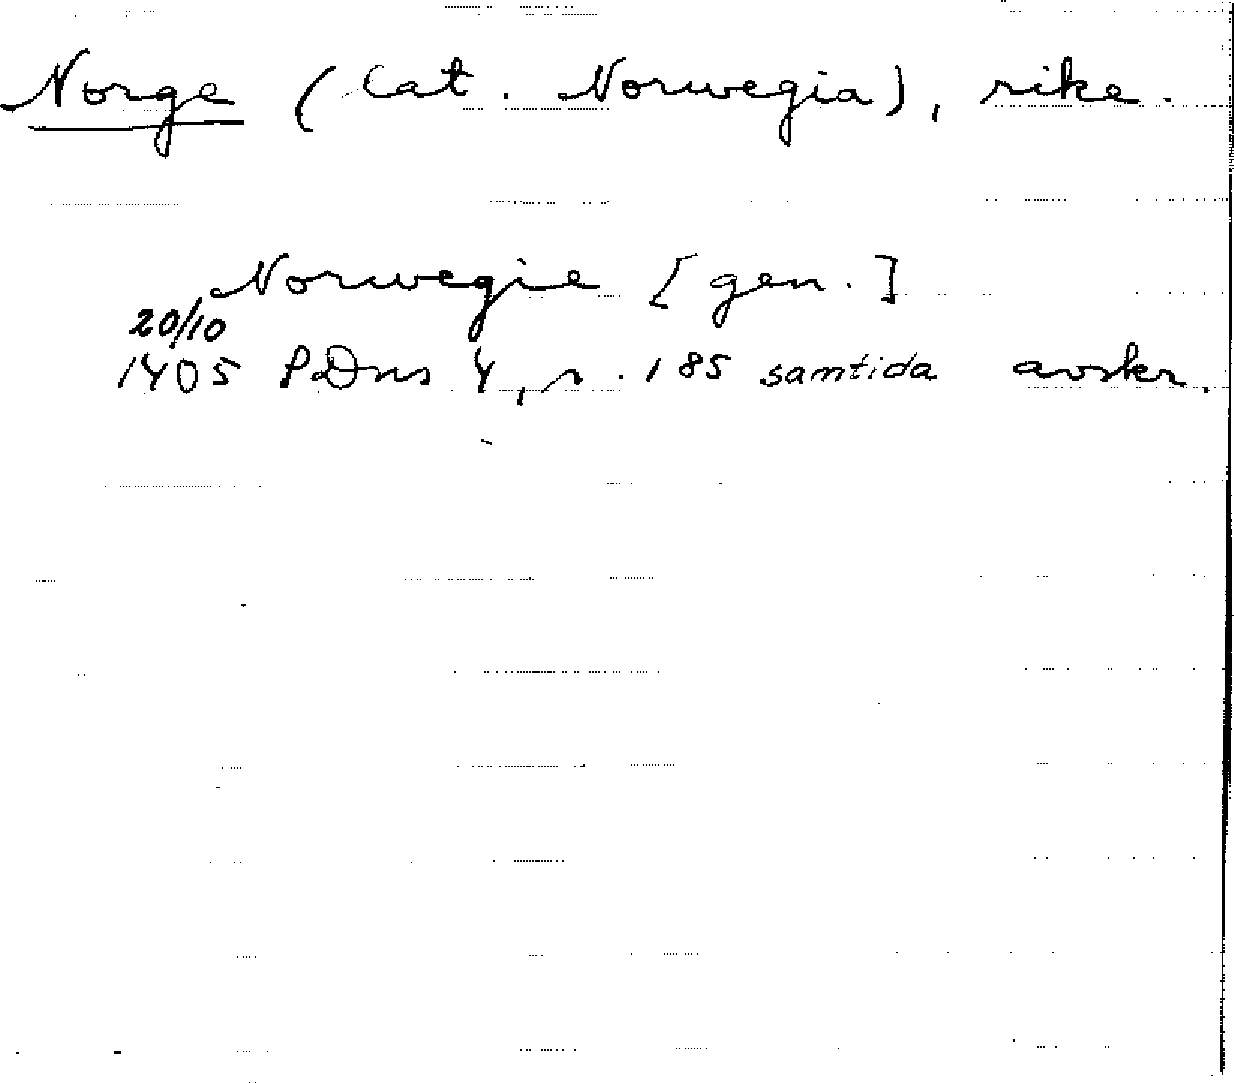 Norge (lat. Norwegia), rike.
Norwegie [gen.]
20/10
1405 PDns 4, s. 185 samtida avskr.